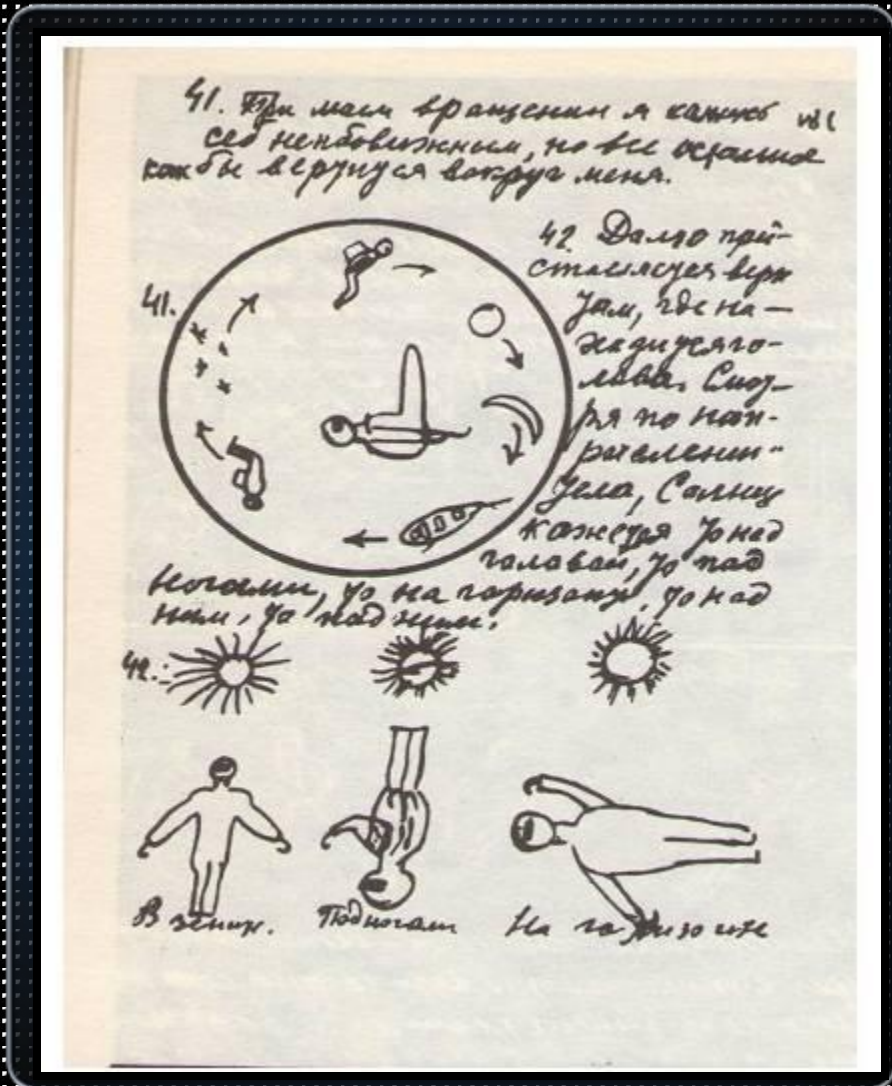 41. При моем вращении я кажусь
себе неподвижным, но все остальное
как бы вертится вокруг меня.
41.
42. Далго пред-
ставляется верх
там, где на-
ходится го-
лова. Смот-
ря по нап-
равлению
тела, Солнце
кажется то над
головой, то под
ногами, то на горизонте, то над
ним, то под ним.
42.
В зените. Под ногами На горизонте